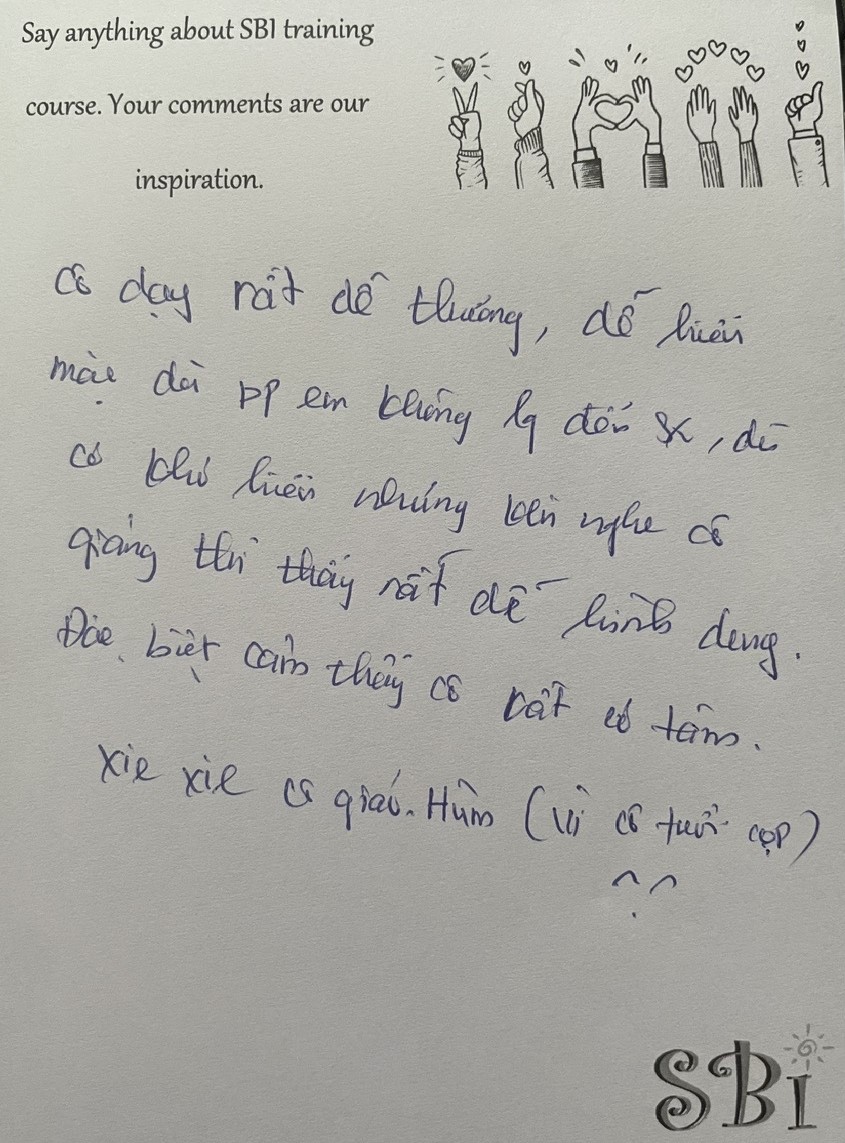 Say anything about SBI training
course. Your comments are our
inspiration.
Cô dạy rất dễ thương, dễ hiểu
mặc dù pp em không lq đến sx, dù
có khó hiểu nhưng khi nghe cô
giảng thì thấy rất dễ hình dung.
Đặc biệt cảm thấy cô rất có tâm.
Xie xie cô giáo Hùm (vì cô tuổi cọp)
^.^
SBI